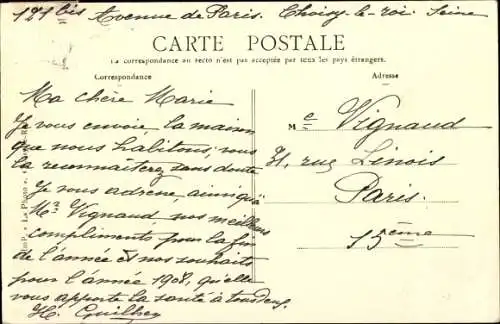 121 bis Avenue de Paris. Choisy-le-roi. Seine
CARTE POSTALE
La correspondance au recto n'est pas acceptée par tous les pays étrangers.
Correspondance
Adresse
Ma chère Marie
Je vous envoie, la maison
que nous habitons, vous
la reconnaîtrez sans doute
Je vous adresse, ainsi qu'à
Mr Vignaud, nos meilleurs
compliments pour la fin
de l'année et nos souhaits
pour l'année 1908, qu'elle
vous apporte la santé à tous deux
H.
Me Vignaud
31, rue Linois
Paris.
15ème